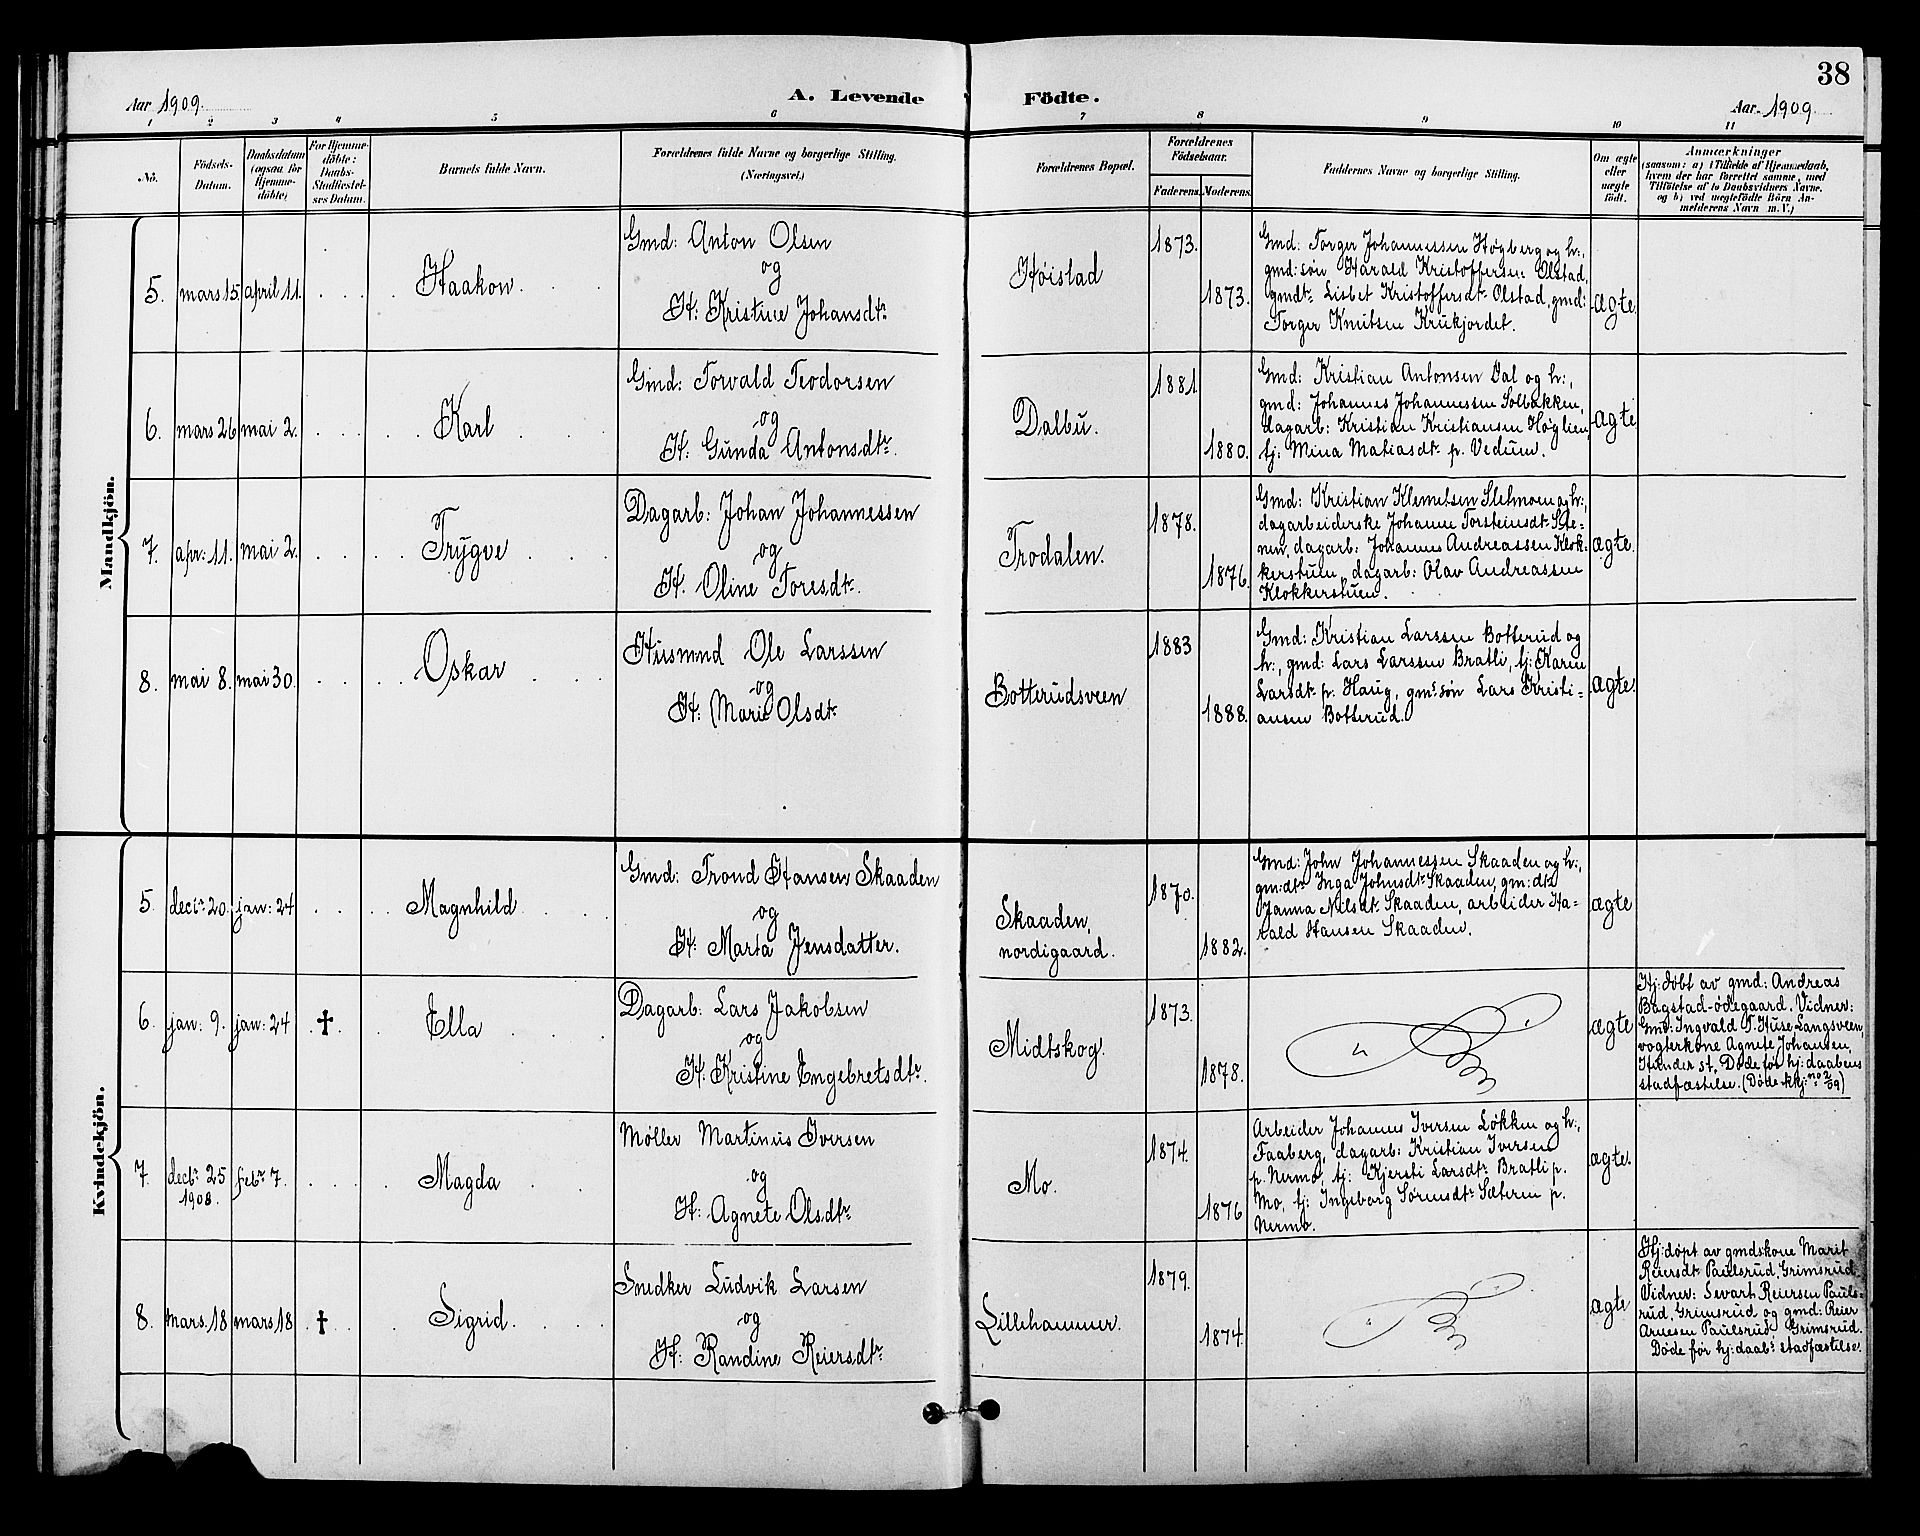 38
Aar 1909.
A. Levende Födte.
Aar 1909.
1 2 3 4 5 6 7 8 9 10 11
No.
Födsels-
Datum.
Daabsdatum
(ogsaa for
Hjemme-
döbte)
For Hjemme-
döbte:
Daabs-
Stadfæstel-
ses Datum.
Barnets fulde Navn.
Forældrenes fulde Navne og borgerlige Stilling.
(Næringsvei.)
Forældrenes Bopæl.
Forældrenes
Födselsaar.
Faderens.
Moderens.
Faddernes Navne og borgerlige Stilling.
Om ægte
eller
uægte
födt.
Anmærkninger
(saasom: a) i Tilfælde af Hjemmedaab,
hvem der har forrettet samme, med
Tilföielse af to Daabsvidners Navne.
og b) ved uægtefödte Börn An-
melderens Navn m. V.)
Mandkjön.
5. mars 15. april 11. Haakon
Gmd: Anton Olsen
og
H: Kristine Johansdtr.
Høistad
1873.
1873.
Gmd: Torger Johannessen Høgberg og h:,
gmd:søn Harald Kristoffersen Olstad,
gmdtr. Lisbet Kristoffersdtr. Olstad, gmd:
Torger Knutsen Krukjordet.
ægte.
6. mars 26 mai 2. Karl
Gmd: Torvald Teodorsen
og
H: Gunda Antonsdtr.
Dalbu.
1881.
1880.
Gmd: Kristian Antonsen Dal og h:,
gmd: Johannes Johannessen Solbakken,
dagarb: Kristian Kristiansen Høglien,
tj: Mina Matiasdtr. p. Vedum.
ægte
7. apr: 11. mai 2. Trygve
Dagarb: Johan Johannessen
og
H. Oline Toresdtr.
Trodalen.
1878.
1876.
Gmd: Kristian Klemetsen Sletmoen og h:,
dagarbeiderske Johanne Torsteinsdtr. Ste-
nen, dagarb: Johannes Andreassen Klok-
kerstuen, dagarb: Olav Andreassen
Klokkerstuen.
ægte.
8. mai 8. mai 30. Oskar
Husmnd Ole Larssen
og
H: Marie Olsdtr.
Botterudsveen
1883
1888.
Gmd: Kristian Larssen Botterud og
h:, gmd: Lars Larssen Bratli, tj: Karen
Larsdtr. p. Haug, gm:søn Lars Kristi-
ansen Botterud.
ægte.
Kvindekjön.
5. decbr. 20. jan: 24 Magnhild
Gmd: Trond Hansen Skaaden
og
H: Marta Jensdatter.
Skaaden,
nordigaard.
1870.
1882.
Gmd: John Johannessen Skaaden og h:,
gm:dtr. Inga Johnsdtr. Skaaden, gm:dtr.
Janna Nilsdtr. Skaaden, arbeider Ha-
rald Hansen Skaaden.
ægte
6. jan: 9. jan: 24 † Ella
Dagarb: Lars Jakobsen
og
H: Kristine Engebretsdtr.
Midtskog.
1873.
1878.
ægte
Hj: døbt av gmd: Andreas
Bagstad-ødegaard. Vidner:
Gmd: Ingvald T. Huse Langsveen,
vogterkone Agnete Johansen,
Hunder st. Døde før hj:daabens
stadfæstelse. (Døde kkj: no 2/09)
7. decbr. 25 1908. febr. 7. Magda
Møller Martinus Iversen
og
H: Agnete Olsdtr.
Mo.
1874.
1876
Arbeider Johannes Iversen Løkken og h:,
Faaberg, dagarb: Kristian Iversen
p. Nermo, tj: Kjersti Larsdtr. Bratli p.
Mo, tj: Ingeborg Sørensdtr. Sæteren p.
Nermo.
ægte.
8. mars. 18 mars. 18 † Sigrid.
Snedker Ludvik Larsen
og
H: Randine Reiersdtr.
Lillehammer.
1879.
1874.
ægte
Hj: døpt av gmdskone Marit
Reiersdtr. Paulsrud, Grimsrud.
Vidner: Sevart Reiersen Pauls-
rud, Grimsrud og gmd: Reier
Arnesen Paulsrud, Grimsrud.
Døde før hj:daabs stadfæstelse.